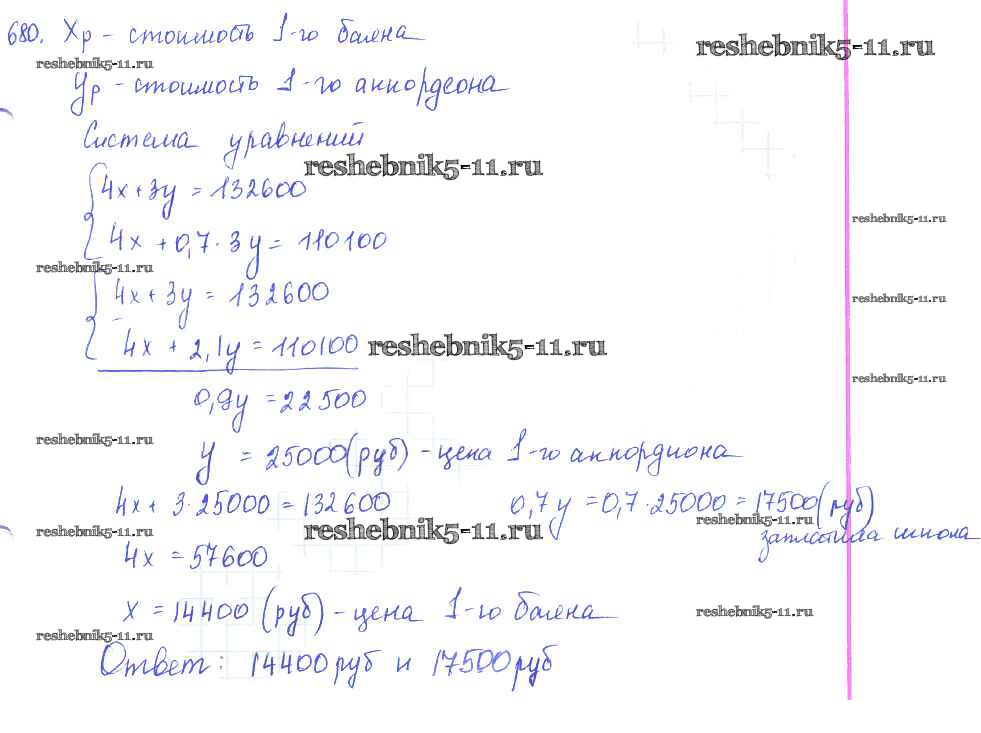 680. Xр - стоимость 1-го баяна
reshebnik5-11.ru
reshebnik5-11.ru
Yр - стоимость 1-го аккордеона
Система уравнений
reshebnik5-11.ru
4x + 3y = 132600
reshebnik5-11.ru
4x + 0,7·3y = 110100
reshebnik5-11.ru
4x + 3y = 132600
reshebnik5-11.ru
4x + 2,1y = 110100
reshebnik5-11.ru
reshebnik5-11.ru
0,9y = 22500
reshebnik5-11.ru
y = 25000(руб) - цена 1-го аккордиона
4x + 3·25000 = 132600
0,7y = 0,7·25000 = 17500(руб)
reshebnik5-11.ru
reshebnik5-11.ru
reshebnik5-11.ru
заплатила школа
4x = 57600
x = 14400 (руб) - цена 1-го баяна
reshebnik5-11.ru
reshebnik5-11.ru
Ответ: 14400 руб и 17500 руб